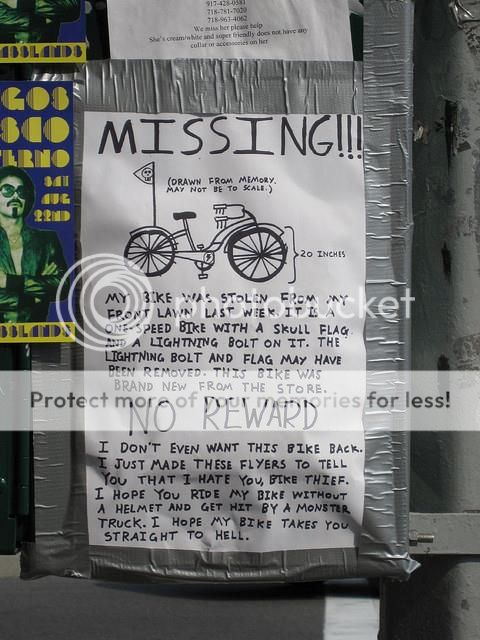 917-428-0581
718-781-7020
718-963-4062
We miss her please help
She's cream/white and super friendly does not have any
collar or accessories on her
SSLANDS
GOS
SCO
FERNO
SAT
AUG
22ND
SSLANDS
MISSING!!!
(DRAWN FROM MEMORY.
MAY NOT BE TO SCALE.)
20 INCHES
MY BIKE WAS STOLEN FROM MY
FRONT LAWN LAST WEEK. IT IS A
ONE-SPEED BIKE WITH A SKULL FLAG
AND A LIGHTNING BOLT ON IT. THE
LIGHTNING BOLT AND FLAG MAY HAVE
BEEN REMOVED. THIS BIKE WAS
BRAND NEW FROM THE STORE.
NO REWARD
I DON'T EVEN WANT THIS BIKE BACK.
I JUST MADE THESE FLYERS TO TELL
YOU THAT I HATE YOU, BIKE THIEF.
I HOPE YOU RIDE MY BIKE WITHOUT
A HELMET AND GET HIT BY A MONSTER
TRUCK. I HOPE MY BIKE TAKES YOU
STRAIGHT TO HELL.
photobucket
Protect more of your memories for less!